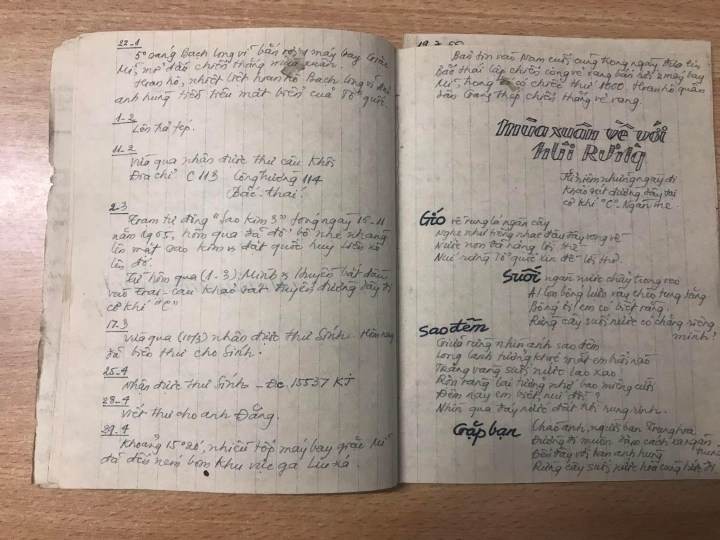 22-1
5 sáng Bạch Long Vĩ bắn rơi 1 máy bay Giặc
Mĩ, mở đầu chiến thắng mùa xuân.
Hoan hô, nhiệt liệt hoan hô Bạch Long Vĩ
anh hùng tiền tiêu mắt biển của Tổ quốc
1-2
Lên Hà
11.2
Vừa qua nhận được thư cậu Khôi
Địa chỉ C113 Công trường 114
Bắc-Thái.
2-3
Trạm tự động "Sao Kim 3" phóng ngày 16-11
năm 1965, hôm qua đã đổ bộ nhẹ nhàng
lên mặt sao kim và đặt quốc huy Liên xô
lên đó.
Từ hôm qua (1-3) Minh và Khuyên bắt đầu
vào Trại-Cau khảo sát tuyến đường dây đi
cơ khí "C"
17.3
Vừa qua (10/3) nhận được thư Sính. Hôm nay
đã biên thư cho Sính.
25-4
Nhận được thư Sính - Đc. 15537 KT
28-4
Viết thư cho anh Đẳng.
29-4
Khoảng 15 20', nhiều tốp máy bay giặc Mĩ
đã đến ném bom khu vực ga Lưu Xá.
Báo tin vào Nam cuối cùng trong ngày
Bắc thái lập chiến công vẻ vang bắn rơi 2 máy bay
Mĩ, trong đó có chiếc thứ 1000. Hoan hô quân
dân Gang Thép chiến thắng vẻ vang.
Mùa xuân về với
Núi Rừng
Kỉ niệm những ngày đi
khảo sát đường dây tải
cơ khí "C". Ngàn me
Gió về rung lá ngàn cây
Nghe như tiếng nhạc đâu đây vọng về
Nước non đã nặng lời thề
Núi rừng Tổ quốc xin đề lời thơ.
Suối ngàn nước chảy trong veo
Ai tạo bóng liễu vay chèo tung tăng
Bóng ơi em có biết rằng
Rừng cây suối nước có chẳng riêng
mình!
Sao đêm
Giữa rừng nhìn ánh sao đêm
Long lanh tưởng khoé mắt em hôm nào
Trăng vàng suối nước lao xao
Rộn ràng lại tưởng nhớ bao miệng cười
Đêm nay em biết, núi đồi?
Nhìn qua đáy nước đất trời rung rinh.
Gặp bạn Chào anh, người bạn Trung hoa
Đường đi muôn dặm cách xa ngàn
trùng
Đến đây với bạn anh hùng
Rừng cây suối nước hoà cùng